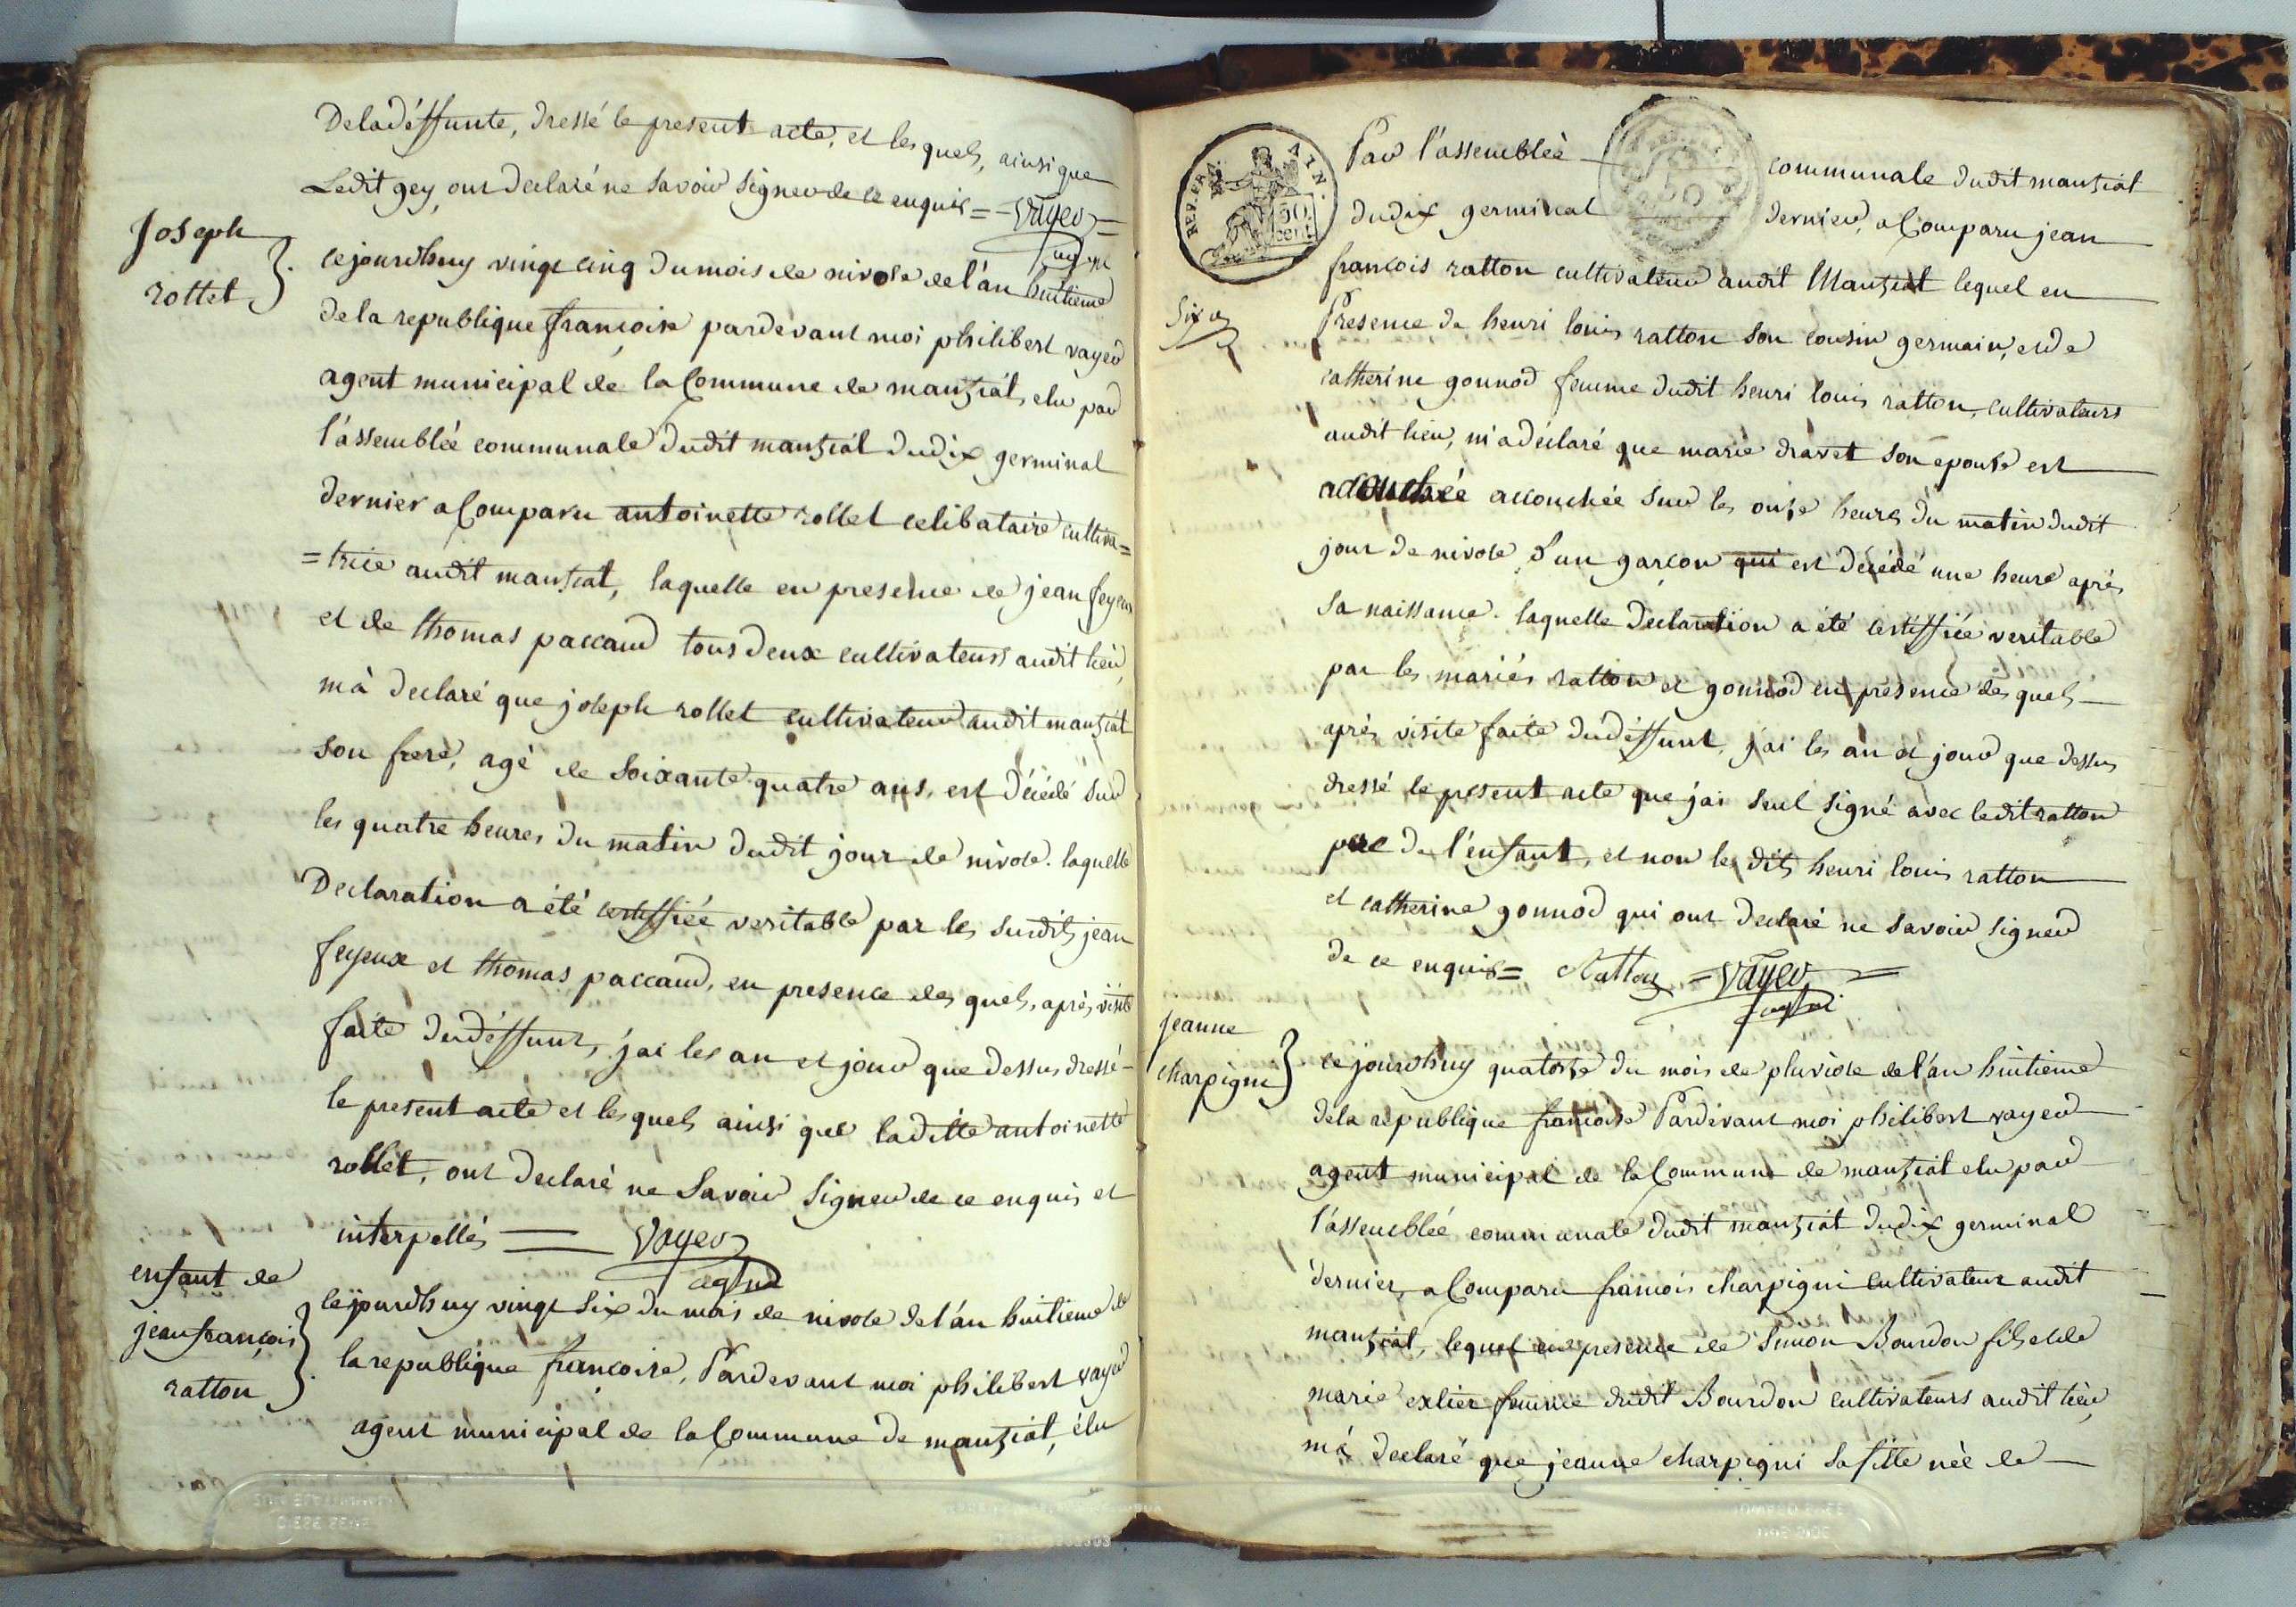 De la déffunte, dressé le present acte, et les quels, ainsi que
Ledit gey, ont declaré ne Savoir Signer de ce enquis = Vayer =
Joseph
rollet
cejourdhuy vingt cinq du mois de nivose de l'an huitieme
de la republique francoise pardevant moi philibert vayer
agent municipal de la Commune de manziat, elu par
l'assembleé communale dudit manziat du dix germinal
dernier a Comparu antoinette rollet celibataire cultiva=
=trice audit manziat, laquelle en presence de jean feyeux
et de thomas paccaud tous deux cultivateurs audit lieu,
m'a declaré que joseph rollet cultivateur audit manziat
son frere, agé de Soixante quatre ans, est décédé sur
les quatre heures du matin dudit jour de nivose. laquelle
Declaration a été certiffiée veritable par les susdits jean
feyeux et thomas paccaud, en presence des quels, après visite
faite dudéffunt, j'ai les an et jour que dessus dressé
le present acte et les quels ainsi que laditte antoinette
rollet, ont declaré ne Savoir Signer de ce enquis et
interpellés = Vayer
agent
enfant de
jean françois
ratton
cejourdhuy vingt Six du mois de nivose de l'an huitieme de
la republique francoise, Pardevant moi philibert vayer
agent municipal de la Commune de manziat, élu
REP. FRA. AIN.
50 cent
50
Par l'assembleé communale dudit manziat
du dix germinal dernier, a Comparu jean
francois ratton cultivateur audit Manziat lequel en
Six
Presence de henri louis ratton son cousin germain, et de
catherine gonnod femme dudit henri louis ratton, cultivateurs
audit lieu, m'a déclaré que marie dravet son epouse est
accouchée accouchée sur les onze heures du matin dudit
jour de nivose, d'un garcon qui est décédé une heure après
Sa naissance. laquelle declaration a été certiffiée veritable
par les mariés ratton et gonnod en presence des quels
après visite faite dudéffunt, j'ai les an et jour que dessus
dressé le present acte que j'ai seul signé avec ledit ratton
pere de l'enfant, et non les dits henri louis ratton
et catherine gonnod qui ont declaré ne savoir signer
de ce enquis = Ratton = Vayer =
jeanne
charpigni
ce jourdhuy quatorze du mois de pluviose de l'an huitieme
de la republique francoise Pardevant moi philibert vayer
agent municipal de la Commune de manziat elu par
l'assembleé communale dudit manziat du dix germinal
dernier, a Comparu francois charpigni cultivateur audit
manziat, lequel en presence de Simon Bourdon fils et de
marie exlier femme dudit Bourdon cultivateurs audit lieu,
m'a declaré que jeanne charpigni sa fille neè de